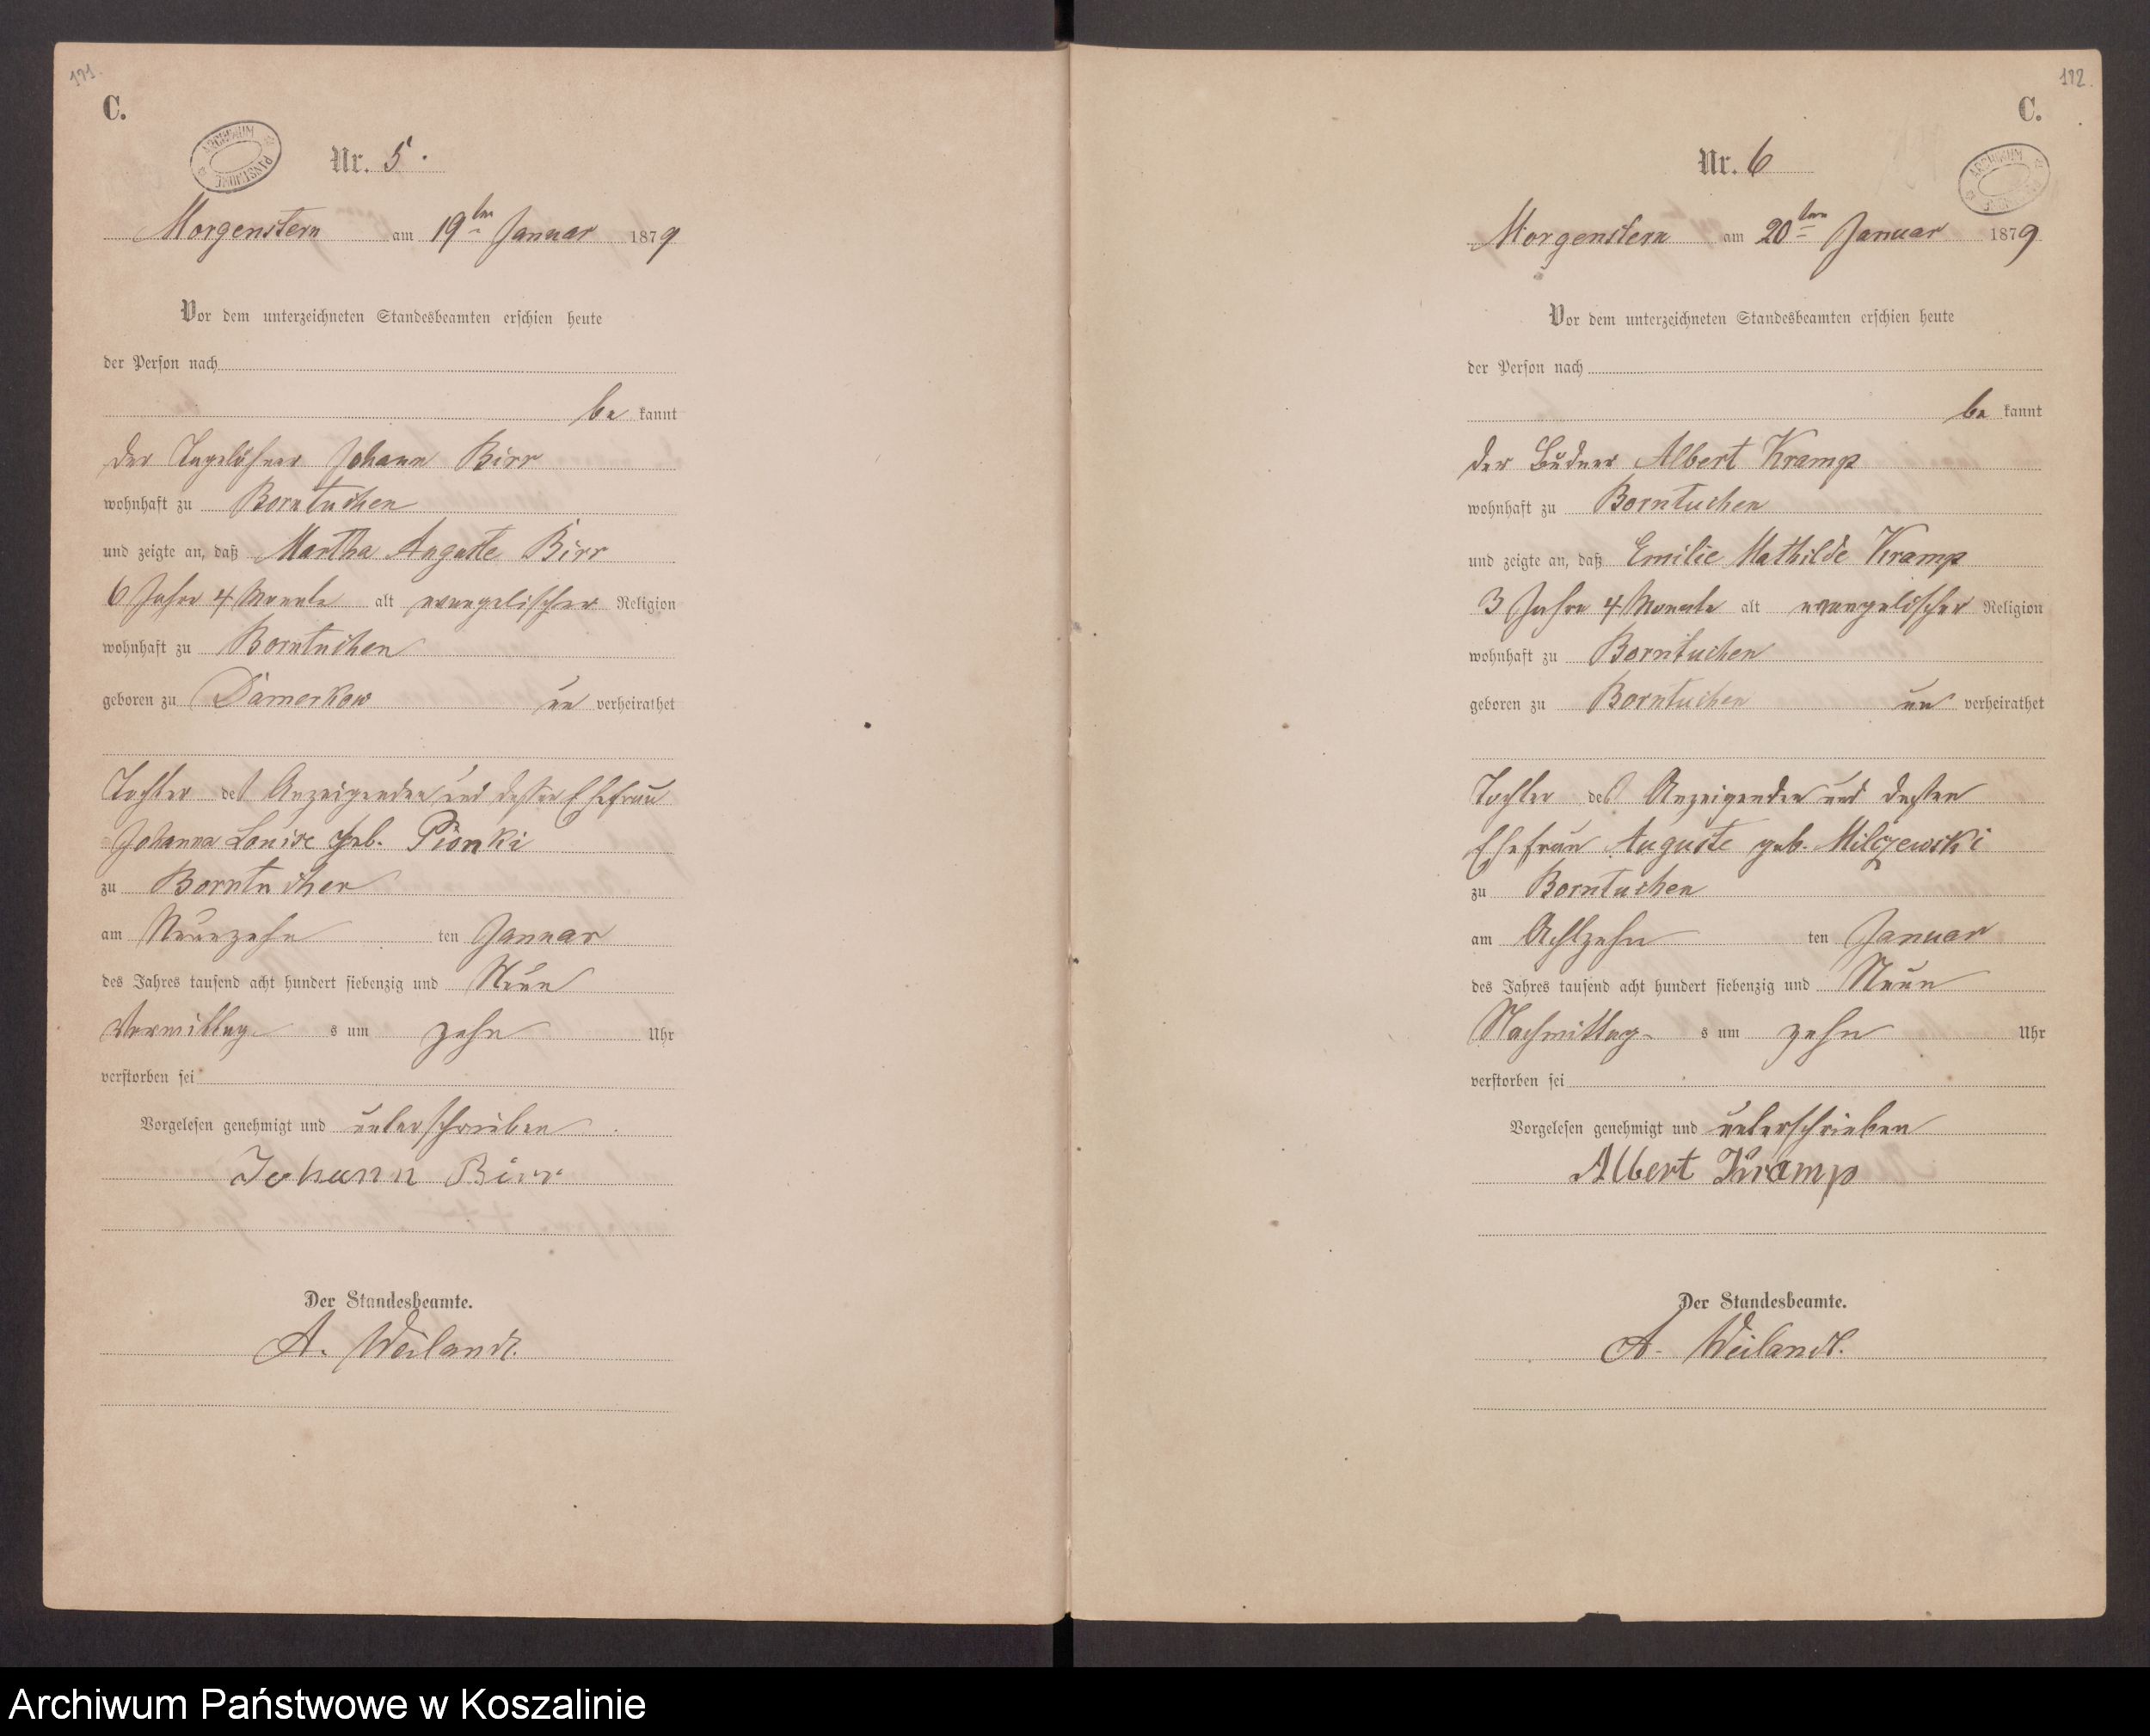 171.
C.
ARCHIWUM PAŃSTWOWE
Nr. 5.
Morgenstern am 19ten Januar 1879
Vor dem unterzeichneten Standesbeamten erschien heute
der Person nach
be kannt
der Tagelöhner Johann Birr
wohnhaft zu Borntuchen
und zeigte an, daß Martha Auguste Birr
6 Jahre 4 Monate alt evangelischer Religion
wohnhaft zu Borntuchen
geboren zu Damerkow un verheirathet
Tochter des Anzeigenden und dessen Ehefrau
Johanna Louise geb. Pionki
zu Borntuchen
am Neunzehn ten Januar
des Jahres tausend acht hundert siebenzig und Neun
Vormittag s um zehn Uhr
verstorben sei
Vorgelesen genehmigt und unterschrieben
Johann Birr
Der Standesbeamte.
A. Weilandt.
172.
C.
ARCHIWUM
Nr. 6
Morgenstern am 20ten Januar 1879
Vor dem unterzeichneten Standesbeamten erschien heute
der Person nach
be kannt
der Büdner Albert Kramp
wohnhaft zu Borntuchen
und zeigte an, daß Emilie Mathilde Kramp
3 Jahre 4 Monate alt evangelischer Religion
wohnhaft zu Borntuchen
geboren zu Borntuchen un verheirathet
Tochter des Anzeigenden und dessen
Ehefrau Auguste geb. Milczewski
zu Borntuchen
am Achtzehn ten Januar
des Jahres tausend acht hundert siebenzig und Neun
Nachmittag s um zehn Uhr
verstorben sei
Vorgelesen genehmigt und unterschrieben
Albert Kramp
Der Standesbeamte.
A. Weilandt.
Archiwum Państwowe w Koszalinie